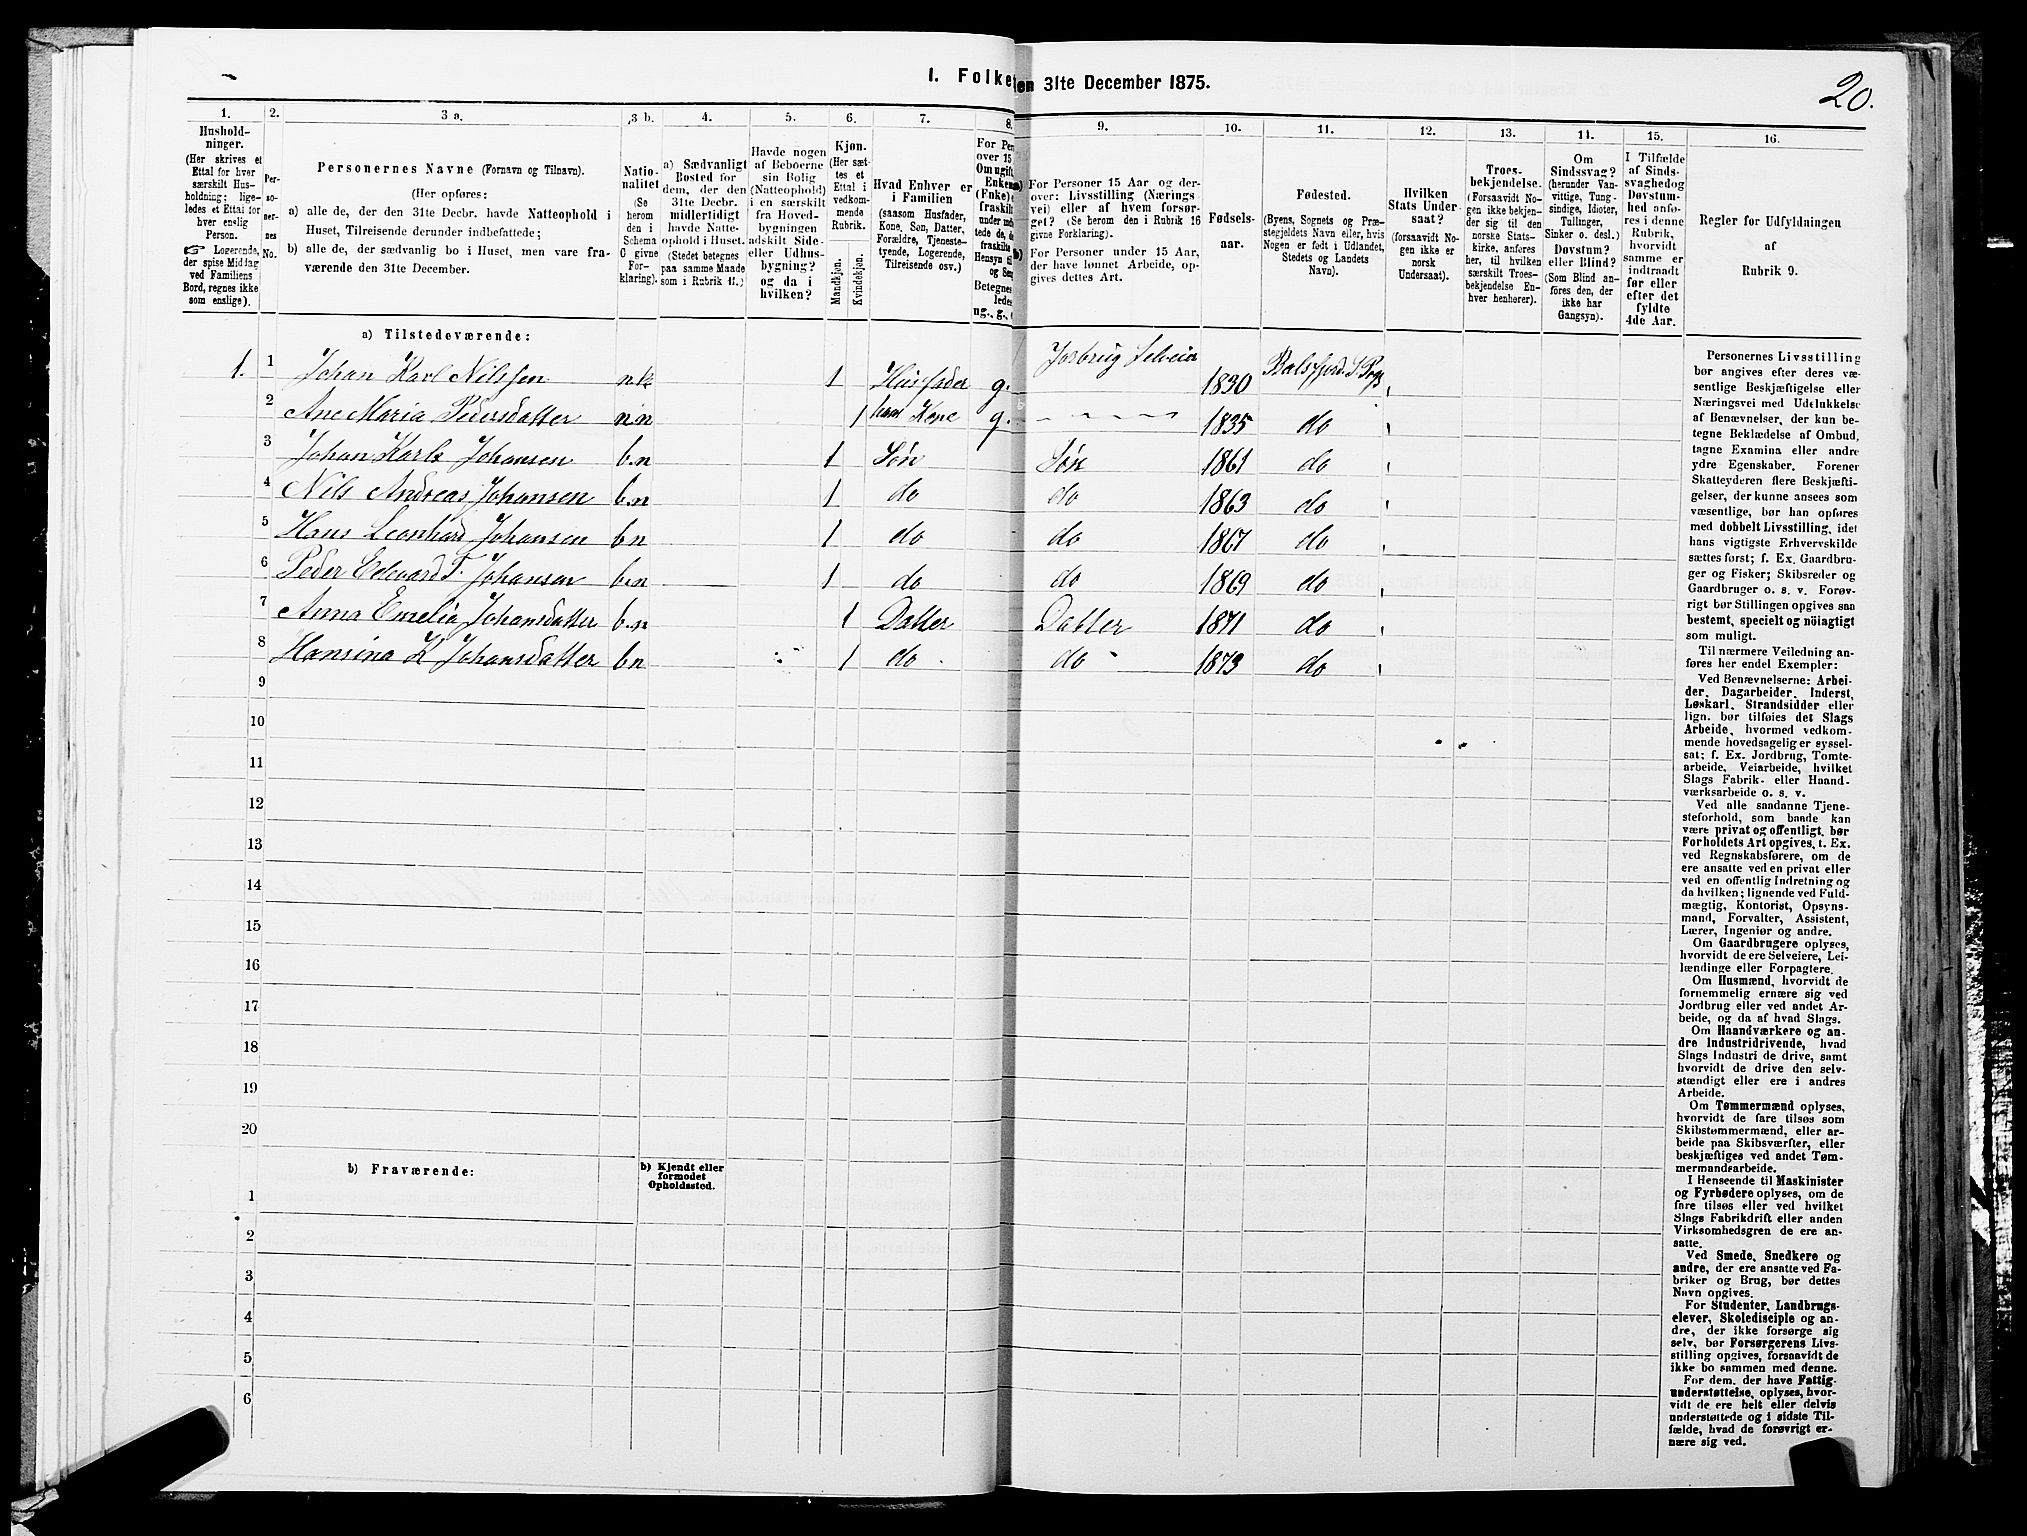 I. Folke
en 31te December 1875.
20.
1.
Hushold-
ninger.
(Her skrives et
Ettal for hver
særskilt Hus-
holdning; lige-
ledes et Ettal for
hver enslig
Person.
☞ Logerende,
der spise Middag
ved Familiens
Bord, regnes ikke
som enslige).
2.
Per-
so-
ner-
nes
No.
3 a.
Personernes Navne (Fornavn og Tilnavn).
(Her opføres:
a) alle de, der den 31te Decbr. havde Natteophold i
Huset, Tilreisende derunder indbefattede;
b) alle de, der sædvanlig bo i Huset, men vare fra-
værende den 31te December.
3 b.
Natio-
nalitet
(Se
herom
den i
Schema
C givne
For-
klaring).
4.
a) Sædvanligt
Bosted for
dem, der den
31te Decbr.
midlertidigt
havde Natte-
ophold i Huset.
(Stedet betegnes
paa samme Maade
som i Rubrik 11.)
5.
Havde nogen
af Beboerne
sin Bolig
(Natteophold)
i en særskilt
fra Hoved-
bygningen
adskilt Side-
eller Udhus-
bygning?
og da i
hvilken?
6.
Kjøn.
(Her sæt-
tes et
Ettal i
vedkom-
mende
Rubrik.
Mandkjøn.
Kvindekjøn.
7.
Hvad Enhver er
i Familien
(saasom Husfader,
Kone, Søn, Datter,
Forældre, Tjeneste-
tyende, Logerende,
Tilreisende osv.)
8.
For Per
over 15
Om ugift
Enkem
(Enke) e
fraskilt
under md
tede de, d
fraskilte
Hensyn ti
og Sen
Betegnes
ledes
ug., g.,
9.
For Personer 15 Aar og der-
over: Livsstilling (Nærings
vei) eller af hvem forsør-
get? (Se herom den i Rubrik 16
givne Forklaring).
For Personer under 15 Aar,
der have lønnet Arbeide, op-
gives dettes Art.
10.
Fødsels-
aar.
11.
Fødested.
(Byens, Sognets og Præ-
stegjeldets Navn eller, hvis
Nogen er født i Udlandet,
Stedets og Landets
Navn).
12.
Hvilken
Stats Under-
saat?
(forsaavidt No-
gen ikke er
norsk
Undersaat).
13.
Troes-
bekjendelse.
(Forsaavidt No-
gen ikke bekjen-
der sig til den
norske Stats-
kirke, anføres
her, til hvilken
særskilt Troes-
bekjendelse En-
hver henhører).
14.
Om
Sindssvag?
(herunder Van-
vittige, Tung-
sindige, Idioter,
Tullinger,
Sinker o. desl.)
Døvstum?
eller Blind?
(Som Blind an-
føres den, der
ikke har
Gangsyn).
15.
I Tilfælde
af Sinds-
svaghed og
Døvstum-
hed anfø-
res i denne
Rubrik,
hvorvidt
samme er
indtraadt
før eller
efter det
fyldte
4de Aar.
16.
Regler for Udfyldningen
af
Rubrik 9.
a) Tilstedeværende:
1. 1 Johan Karl Nilssen n.k 1 Husfader g. Jorbrug Selveier 1830 Balsfjord S
2 Ane Maria Pedersdatter n.n 1 hans Kone g. 1835 do
3 Johan Karls Johansen b.n 1 Søn Søn 1861 do
4 Nils Andreas Johansen b.n 1 do do 1863 do
5 Hans Leonhard Johansen b.n 1 do do 1867 do
6 Peder Edevard F. Johansen b.n 1 do do 1869 do
7 Anna Emelia Johansdatter b.n 1 Datter Datter 1871 do
8 Hansina K Johansdatter b.n 1 do do 1873 do
9
10
11
12
13
14
15
16
17
18
19
20
b) Fraværende:
b) Kjendt eller
formodet
Opholdssted.
1
2
3
4
5
6
Personernes Livsstilling
bør angives efter deres væ-
sentlige Beskjæftigelse eller
Næringsvei med Udelukkelse
af Benævnelser, der kun be-
tegne Beklædelse af Ombud,
tagne Examina eller andre
ydre Egenskaber. Forener
Skatteyderen flere Beskjæfti-
gelser, der kunne ansees som
væsentlige, bør han opføres
med dobbelt Livsstilling, idet
hans vigtigste Erhvervskilde
sættes først; f. Ex. Gaardbru-
ger og Fisker; Skibsreder og
Gaardbruger o. s. v. Forøv-
rigt bør Stillingen opgives saa
bestemt, specielt og nöiagtigt
som muligt.
Til nærmere Veiledning an-
føres her endel Exempler:
Ved Benævnelserne: Arbei-
der, Dagarbeider, Inderst,
Løskarl, Strandsidder eller
lign. bør tilføies det Slags
Arbeide, hvormed vedkom-
mende hovedsagelig er syssel-
sat; f. Ex. Jordbrug, Tomte-
arbeide, Veiarbeide, hvilket
Slags Fabrik- eller Haand-
værksarbeide o. s. v.
Ved alle saadanne Tjene-
steforhold, som baade kan
være privat og offentligt, bør
Forholdets Art opgives, t. Ex.
ved Regnskabsførere, om de
ere ansatte ved en privat eller
ved en offentlig Indretning og
da hvilken; lignende ved Fuld-
mægtig, Kontorist, Opsyns-
mand, Forvalter, Assistent,
Lærer, Ingeniør og andre.
Om Gaardbrugere oplyses,
hvorvidt de ere Selveiere, Lei-
lændinge eller Forpagtere.
Om Husmænd, hvorvidt de
fornemmelig ernære sig ved
Jordbrug eller ved andet Ar-
beide, og da af hvad Slags.
Om Haandværkere og an-
dre Industridrivende, hvad
Slags Industri de drive, samt
hvorvidt de drive den selv-
stændigt eller ere i andres
Arbeide.
Om Tømmermænd oplyses,
hvorvidt de fare tilsøs som
Skibstømmermænd, eller ar-
beide paa Skibsværfter, eller
beskjæftiges ved andet Tøm-
mermandsarbeide.
I Henseende til Maskinister
og Fyrbødere oplyses, om de
fare tilsøs eller ved hvilket
Slags Fabrikdrift eller anden
Virksomhedsgren de ere an-
satte.
Ved Smede, Snedkere og
andre, der ere ansatte ved Fa-
briker og Brug, bør dettes
Navn opgives.
For Studenter, Landbrugs-
elever, Skoledisciple og an-
dre, der ikke forsørge sig
selv, bør Forsørgerens Livs-
stilling opgives, forsaavidt de
ikke bo sammen med denne.
For dem, der have Fattig-
understøttelse, oplyses, hvor-
vidt de ere helt eller delvis
understøttede og i sidste Til-
fælde, hvad de forøvrigt er-
nære sig ved.